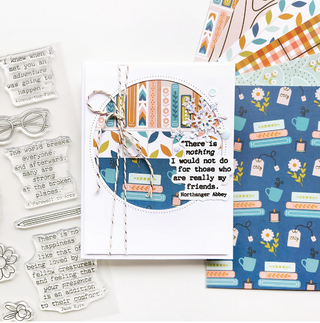 I knew when I
met you an
adventure
was going to
happen.
The world breaks
everyone,
and afterward,
many are
strong
at the broken
places.
A Farewell to Arms
There is no
happiness
like that of
being loved by
fellow creatures,
and feeling that
your presence
is an addition
to their comfort.
Jane Eyre
"There is
nothing
I would not do
for those who
are really my
friends."
Northanger Abbey